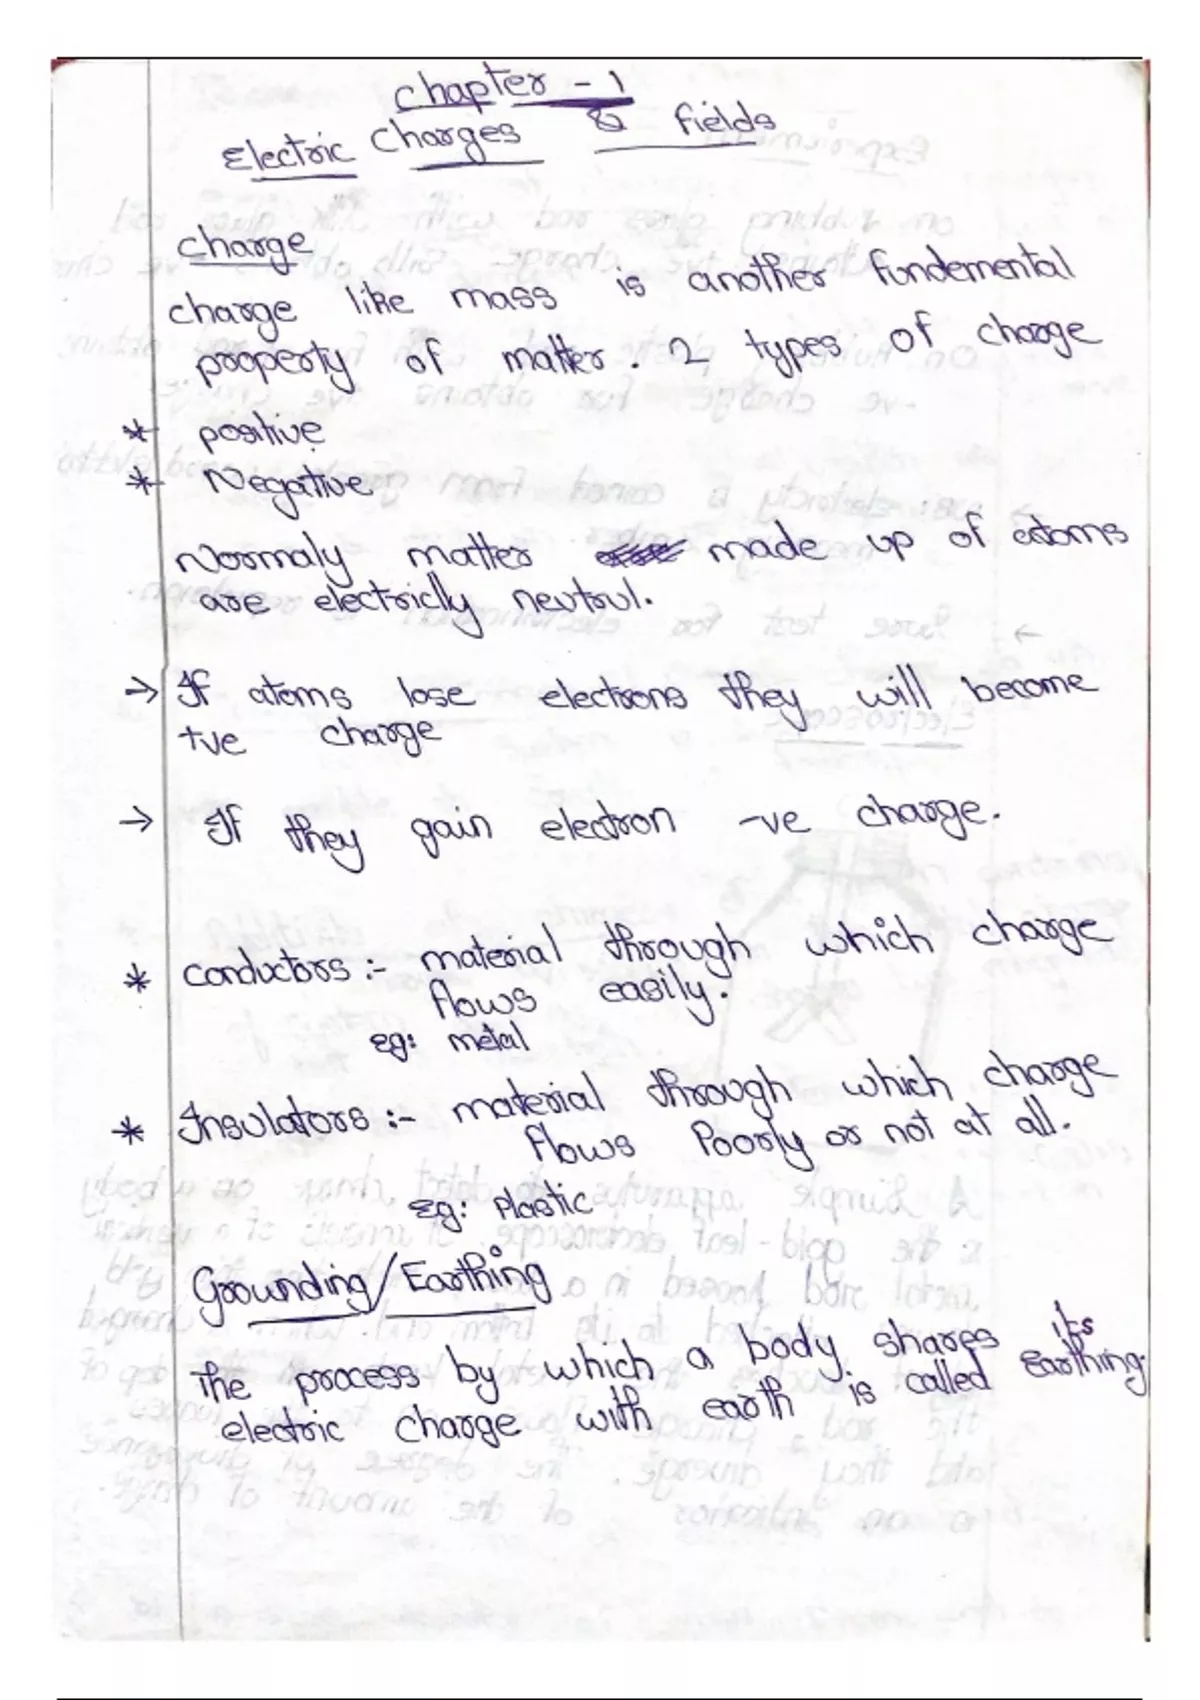 Chapter - 1
Electric Charges & fields
charge
charge like mass is another fundemental
property of matter. 2 types of charge
* positive
* Negative
Normaly matter made up of atoms
are electriclly neutrul.
→ If atoms lose electrons they will become
+ve charge
→ If they gain electron -ve charge.
* Conductors :- material through which charge
flows easily.
eg: metal
* Insulators :- material through which charge
flows Poorly or not at all.
Eg: Plastic
Grounding/Earthing
The process by which a body shares its
electric charge with earth is called Earthing.